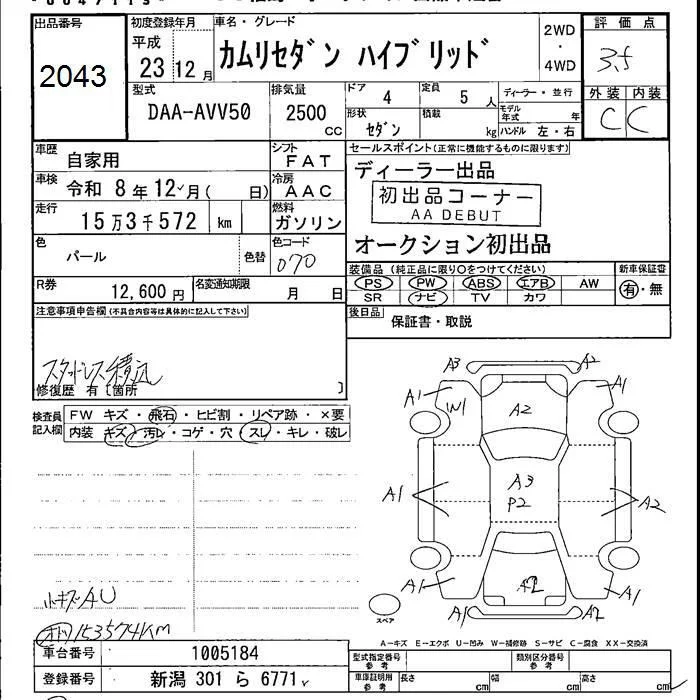 出品番号
2043
初度登録年月
平成
23 12 月
車名・グレード
カムリセダン ハイブリッド
2WD
・
4WD
評価点
3.5
外装 内装
C C
型式
DAA-AVV50
排気量
2500
cc
ドア
4
定員
5 人
形状
セダン
積載
kg
ディーラー・並行
モデル年式 年
ハンドル 左・右
車歴
自家用
シフト
FAT
車検
令和 8年12月( 日)
冷房
AAC
走行
15万3千572 km
燃料
ガソリン
色
パール
色替
色コード
070
R券
12,600 円
名変通知期限
月 日
セールスポイント(正常に機能するものに限ります)
ディーラー出品
初出品コーナー
AA DEBUT
オークション初出品
装備品 (純正品に限り○をつけてください)
PS PW ABS エアB AW
SR ナビ TV カワ
新車保証書
有・無
後日品
保証書・取説
注意事項申告欄(不具合内容等は具体的に記入して下さい)
スタットレス積込
修復歴 有〔箇所 〕
検査員
記入欄
FW キズ・飛石・ヒビ割・リペア跡・×要
内装 キズ・汚レ・コゲ・穴・スレ・キレ・破レ
A3 A2
A1 A1
W1
A2
A1
A3
P2
A2
A1 A1
A2
A1 A2
スペア
小キズAU
オド153574KM
A-キズ E-エクボ U-凹み W-補修跡 S-サビ C-腐食 XX-交換済
車台番号
1005184
登録番号
新潟 301 ら 6771
型式指定番号
参考
類別区分番号
参考
車庫証明用
参考
長さ cm
幅 cm
高さ cm